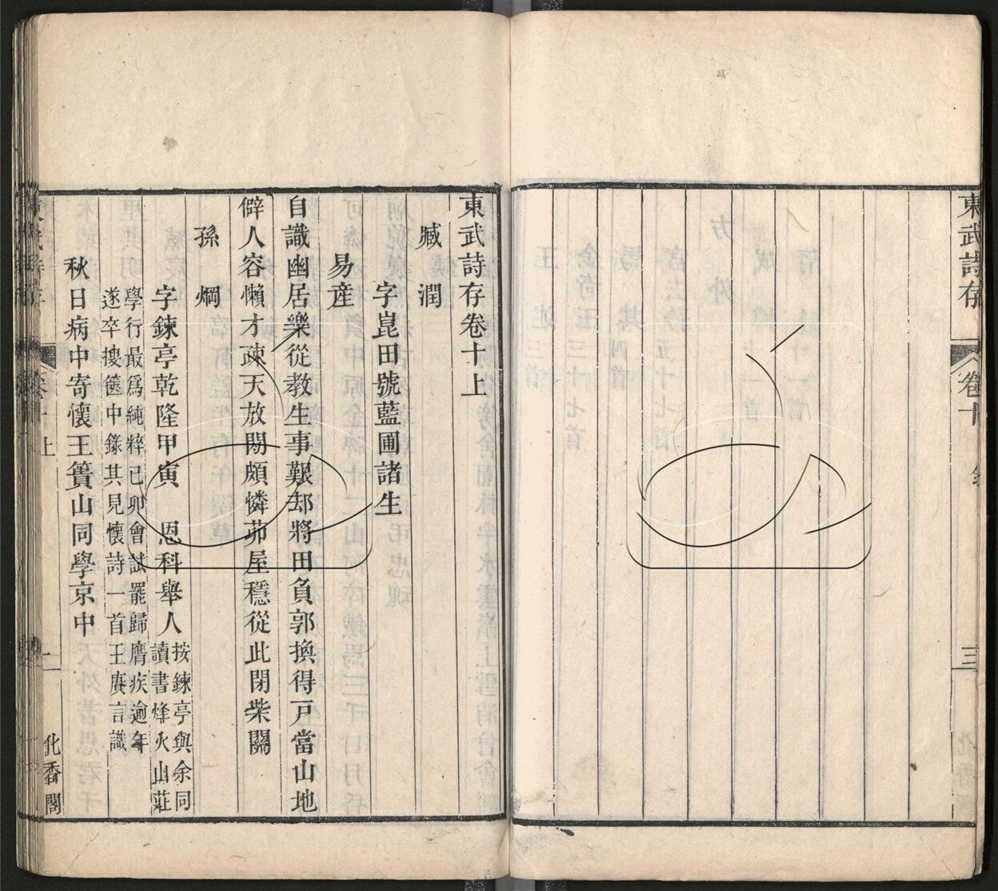 東武詩存
卷十
三
東武詩存卷十上
臧潤
字崑田號藍圃諸生
易産
自識幽居樂從教生事艱却將田負郭換得戸當山地
僻人容懶才疎天放閒頗憐茆屋穩從此閉柴關
孫烱
字鍊亭乾隆甲寅 恩科舉人按鍊亭與余同
讀書烽火山莊
學行最爲純粹己卯會試罷歸膺疾逾年
遂卒搜篋中錄其見懷詩一首王賡言識
秋日病中寄懷王簣山同學京中
卷十上
一
化香閣